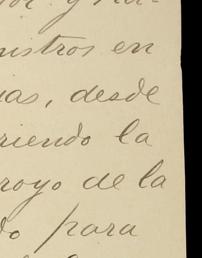 y na-
nistros en
as, desde
riendo la
royo de la
do para